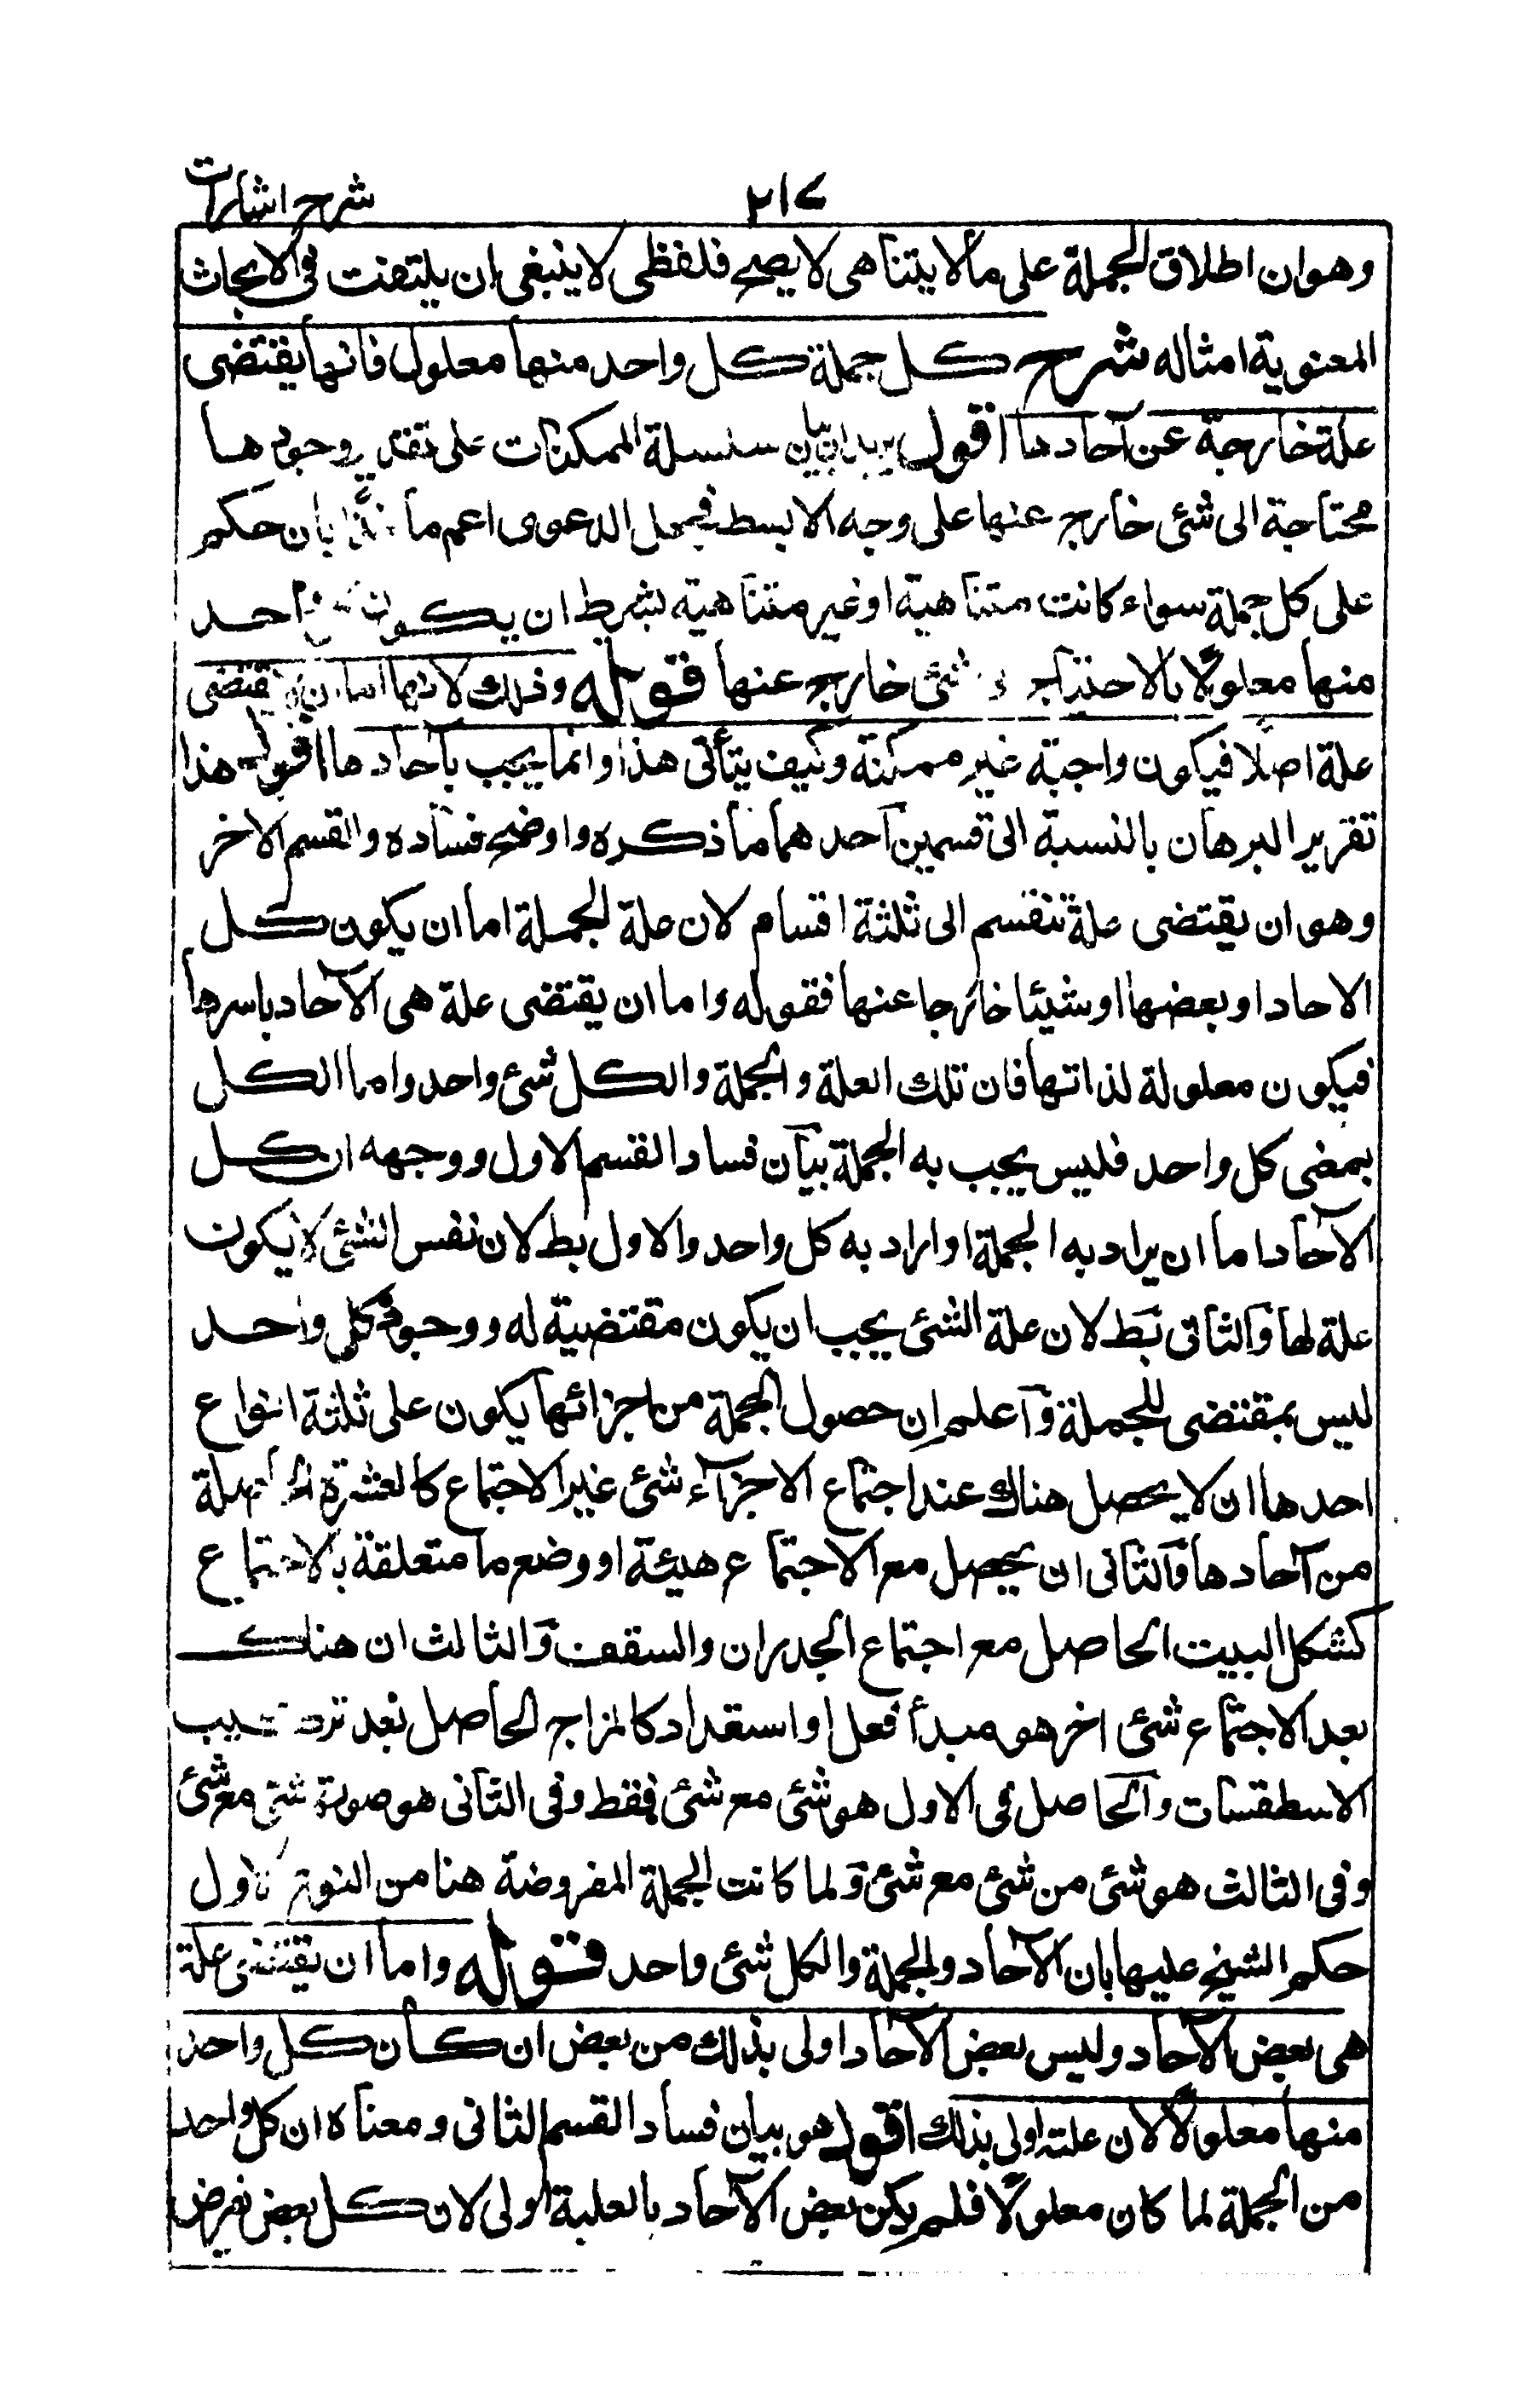 شرح اشارات
٢١٧
وهو ان اطلاق الجملة على ما لا يتناهى لا يصح فلفظى لا ينبغى ان يلتفت فى الابحاث
المعنوية امثاله شرح كل جملة كل واحد منها معلول فانها يقتضى
علة خارجة عن آحادها اقول يريد بيان سلسلة الممكنات على تقدير وجودها
محتاجة الى شئ خارج عنها على وجه الابسط فجعل الدعوى اعم مأخذا بان حكم
على كل جملة سواء كانت متناهية او غير متناهية بشرط ان يكون واحد
منها معلولا بالاحتياج شئ خارج عنها قوله وذلك لانها اما ان يقتضى
علة اصلا فيكون واجبة غير ممكنة وكيف يتأتى هذا وانما يجب بآحادها اقول هذا
تقرير البرهان بالنسبة الى قسمين آحدهما ما ذكره واوضح فساده والقسم الاخر
وهو ان يقتضى علة تنقسم الى ثلثة اقسام لان علة الجملة اما ان يكون كل
الاحاد او بعضها او شيئا خارجا عنها فقوله واما ان يقتضى علة هى الآحاد باسرها
فيكون معلولة لذاتها فان تلك العلة والجملة والكل شئ واحد واما الكل
بمعنى كل واحد فليس يجب به الجملة بيان فساد القسم الاول ووجهه ان كل
الآحاد اما ان يراد به الجملة او اراد به كل واحد والاول بط لان نفس الشئ لا يكون
علة لها والثانى بط لان علة الشئ يجب ان يكون مقتضية له ووجود كل واحد
ليس بمقتضى للجملة وآعلم ان حصول الجملة من اجزائها يكون على ثلثة انواع
احدها ان لا يحصل هناك عند اجتماع الاجزآء شئ غير الاجتماع كالعشرة الحاصلة
من آحادها والثانى ان يحصل مع الاجتماع هيئة او وضع ما متعلقة بالاجتماع
كشكل البيت الحاصل مع اجتماع الجدران والسقف والثالث ان هناك
بعد الاجتماع شئ اخر هو مبدأ فعل او استعداد كالمزاج الحاصل بعد تركيب
الاسطقسات والحاصل فى الاول هو شئ مع شئ فقط وفى الثانى هو صورة شئ مع شئ
وفى الثالث هو شئ من شئ مع شئ ولما كانت الجملة المفروضة هنا من النوع الاول
حكم الشيخ عليها بان الآحاد والجملة والكل شئ واحد قوله واما ان يقتضى علة
هى بعض الآحاد وليس بعض الآحاد اولى بذلك من بعض ان كان كل واحد
منها معلولا لان علته اولى بذلك اقول هو بيان فساد القسم الثانى ومعناه ان كل واحد
من الجملة لما كان معلولا فلم يكن بعض الآحاد بالعلية اولى لان كل بعض نفرض